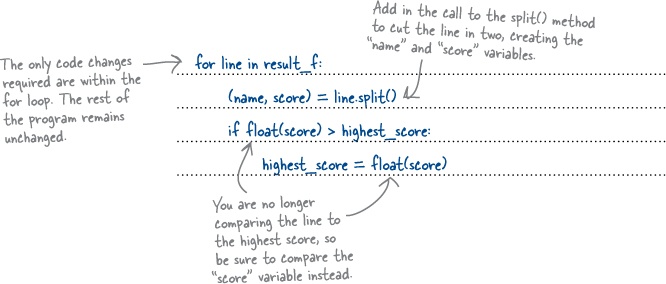 Add in the call to the split() method
to cut the line in two, creating the
"name" and "score" variables.
The only code changes
required are within the
for loop. The rest of
the program remains
unchanged.
for line in result_f:
(name, score) = line.split()
if float(score) > highest_score:
highest_score = float(score)
You are no longer
comparing the line to
the highest score, so
be sure to compare the
"score" variable instead.